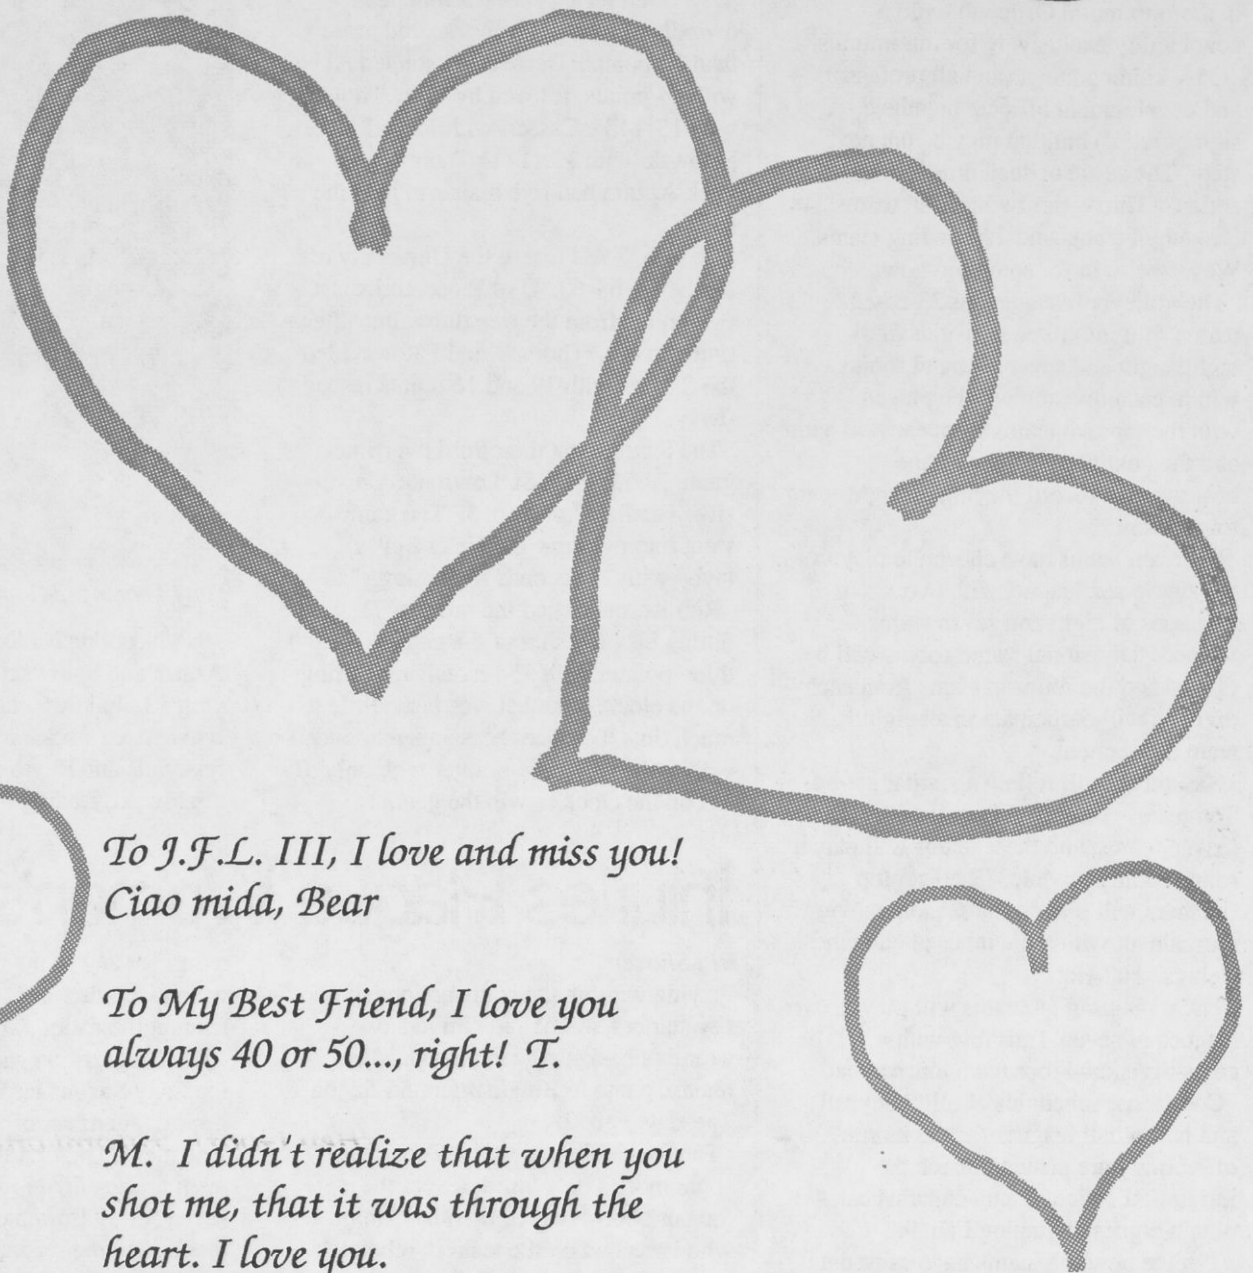 To J.F.L. III, I love and miss you!
Ciao mida, Bear
To My Best Friend, I love you
always 40 or 50..., right! T.
M. I didn't realize that when you
shot me, that it was through the
heart. I love you.